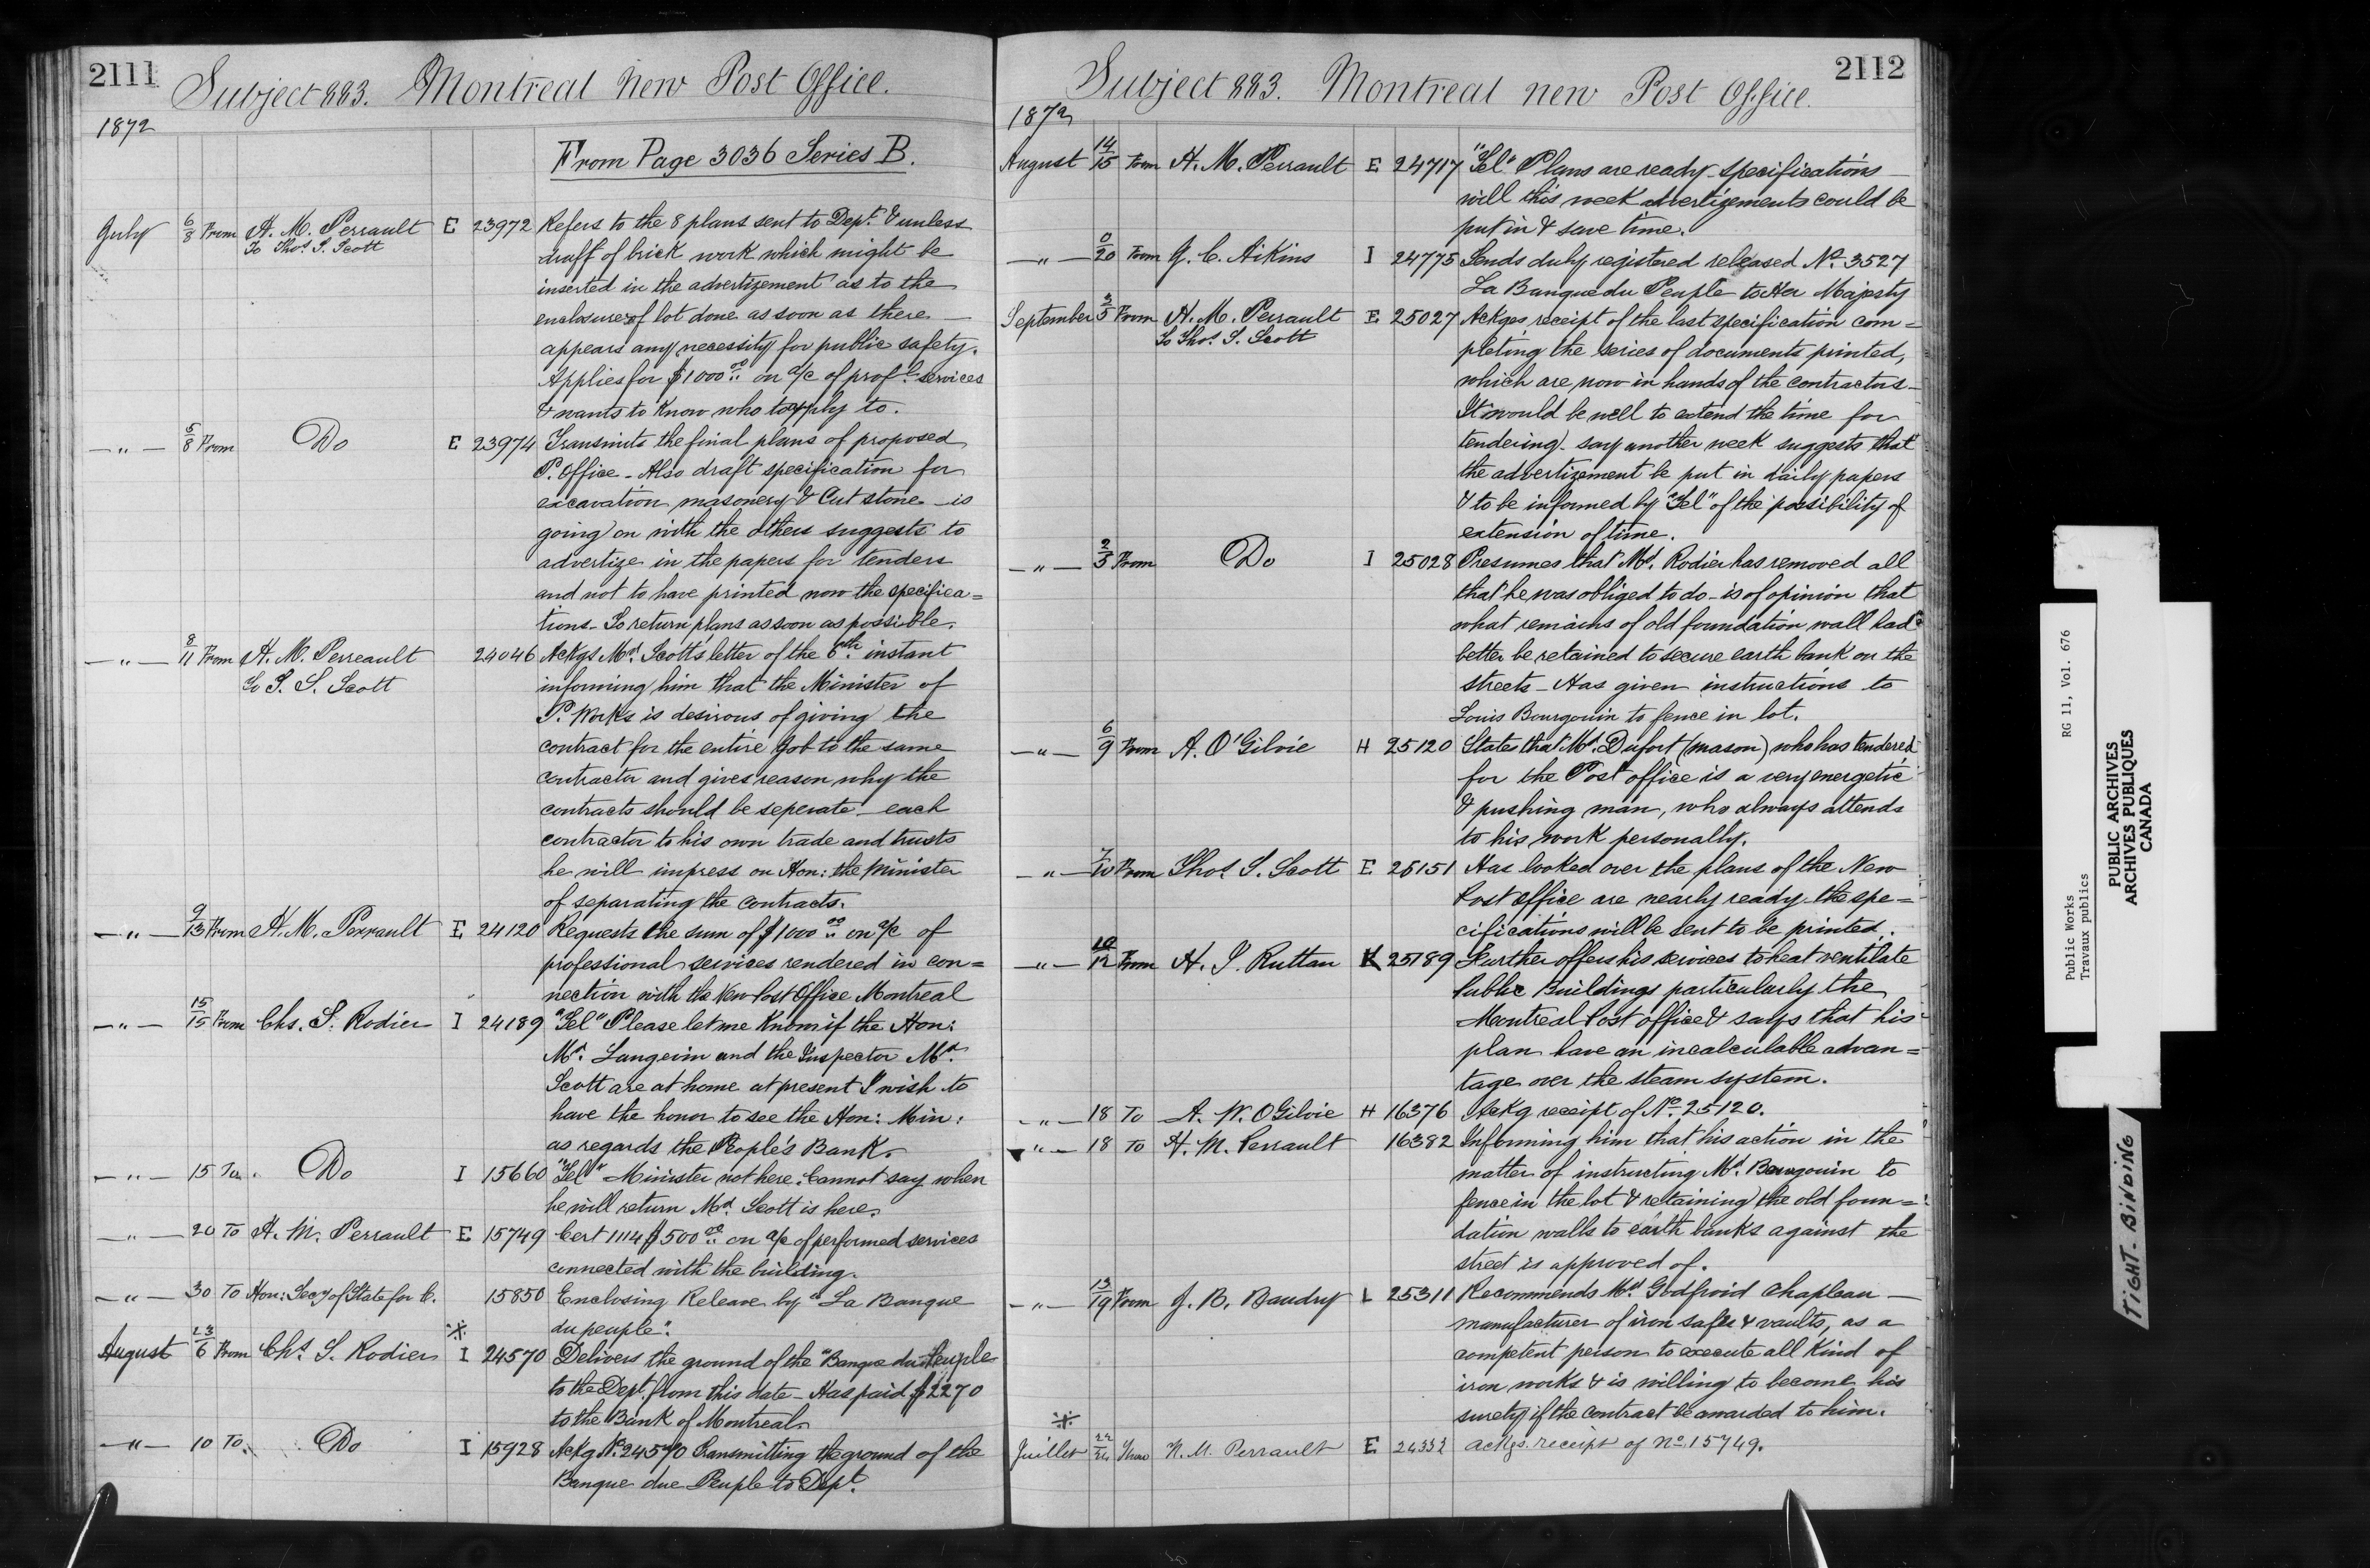 2111
Subject 883. Montreal New Post Office.
1872
From Page 3036 Series B.
July 6/8 From H. M. Perrault E 23972 Refers to the 8 plans sent to Dept. & unless
To Thos. S. Scott
draff of brick work which might be
inserted in the advertizement as to the
enclosure of lot done as soon as there —
appears any necessity for public safety.
Applies for $1000 00 on a/c of profl. services
& wants to Know who to apply to.
— " — 5/8 From Do E 23974 Transmits the final plans of proposed
P. Office - Also draft specification for
excavation, masonery & Cut stone - is
going on with the others suggests to
advertize in the papers for tenders
and not to have printed now the specifica=
tions - To return plans as soon as possible.
— " — 8/11 From H. M. Perreault 24046 Ackgs Mr. Scott's letter of the 6th instant
To T. S. Scott
informing him that the Minister of
P. Works is desirous of giving the
contract for the entire Job to the same
contractor and gives reason why the
contracts should be seperate - each
contractor to his own trade and trusts
he will impress on Hon: the Minister
of separating the contracts.
— " — 9/13 From H. M. Perrault E 24120 Requests the sum of $1000 00 on a/c of
professional services rendered in con=
nection with the New Post Office Montreal
— " — 15/15 From Chs. S. Rodier I 24189 "Tel" Please let me Know if the Hon:
Mr. Langevin and the Inspector Mr.
Scott are at home at present I wish to
have the honor to see the Hon: Min:
as regards the People's Bank.
— " — 15 To Do I 15660 "Tel" Minister not here. Cannot say when
he will return Mr. Scott is here.
— " — 20 To H. M. Perrault E 15749 Cert 1114 $500 00 on a/c of performed services
connected with the building.
— " — 30 To Hon: Secy of State for C. 15850 Enclosing Release by "La Banque
du peuple".
August 23/6 From Chs. S. Rodier I 24570 Delivers the ground of the "Banque du Peuple
to the Dept. from this date - Has paid $2270
to the Bank of Montreal.
— " — 10 To Do I 15928 Ackg No. 24570 Transmitting the ground of the
Banque due Peuple to Dept.
2112
Subject 883. Montreal new Post Office.
1872
August 14/15 From H. M. Perrault E 24717 "Tel" Plans are ready - specifications —
will this week advertizements could be
put in & save time.
— " — 0/20 From J. C. Aikins I 24775 Sends duly registered released No. 3527
La Banque du Peuple to Her Majesty
September 3/5 From H. M. Perrault E 25027 Ackges receipt of the last specification com=
To Thos. S. Scott
pleting the series of documents printed,
which are now in hands of the contractors -
It would be well to extend the time for
tendering - say another week suggests that
the advertizement be put in daily papers
& to be informed by "Tel" of the possibility of
extension of time.
— " — 2/5 From Do I 25028 Presumes that Mr. Rodier has removed all
that he was obliged to do - is of opinion that
what remains of old foundation wall had
better be retained to secure earth bank on the
streets - Has given instructions to
Louis Bourgouin to fence in lot.
— " — 6/9 From A. O'Gilvie H 25120 States that Mr. Dufort (mason) who has tendered
for the Post office is a very energetic
& pushing man, who always attends
to his work personally.
— " — 7/10 From Thos. S. Scott E 25151 Has looked over the plans of the New
Post office are nearly ready - the spe=
cifications will be sent to be printed.
— " — 10/12 From H. J. Ruttan K 25189 Further offers his services to heat ventilate
Public Buildings particularly the
Montreal Post office & says that his
plan have an incalculable advan=
tage over the steam system.
— " — 18 To A. W. OGilvie H 16376 Ackg receipt of No. 25120.
— " — 18 To H. M. Perrault 16382 Informing him that his action in the
matter of instructing Mr. Bourgouin to
fence in the lot & retaining the old foun=
dation walls to earth banks against the
street is approved of.
— " — 13/19 From J. B. Baudry L 25311 Recommends Mr. Godfroid Chapleau —
manufacturer of iron safes & vaults, as a
competent person to execute all Kind of
iron works & is willing to become his
surety if the contract be awarded to him.
Juillet 22/24 From H. M. Perrault E 24332 ackgs. receipt of no. 15749.
Public Works RG 11, Vol. 676
Travaux publics
PUBLIC ARCHIVES
ARCHIVES PUBLIQUES
CANADA
TIGHT BINDING